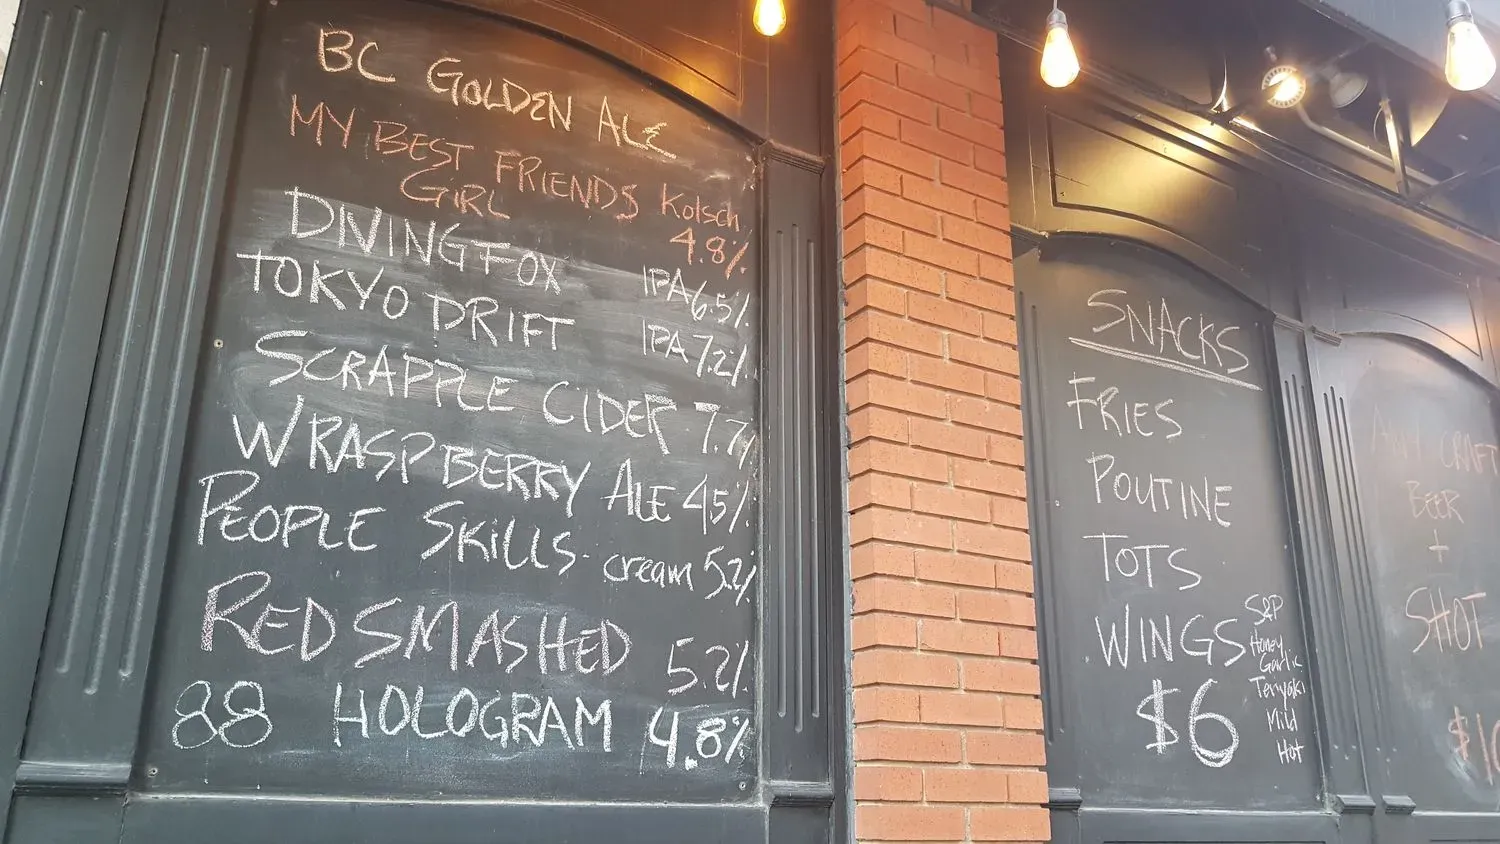 BC GOLDEN ALE
MY BEST FRIENDS Kolsch
GIRL 4.8%
DIVING FOX IPA 6.5%
TOKYO DRIFT IPA 7.2%
SCRAPPLE CIDER 7.7%
WRASPBERRY ALE 4.5%
PEOPLE SKiLLS - cream 5.2%
RED SMASHED 5.2%
88 HOLOGRAM 4.8%
SNACKS
FRIES
POUTINE
TOTS
WINGS
S&P
Honey
Garlic
Teriyaki
Mild
Hot
$6
ANY CRAFT
BEER
+
SHOT
$10